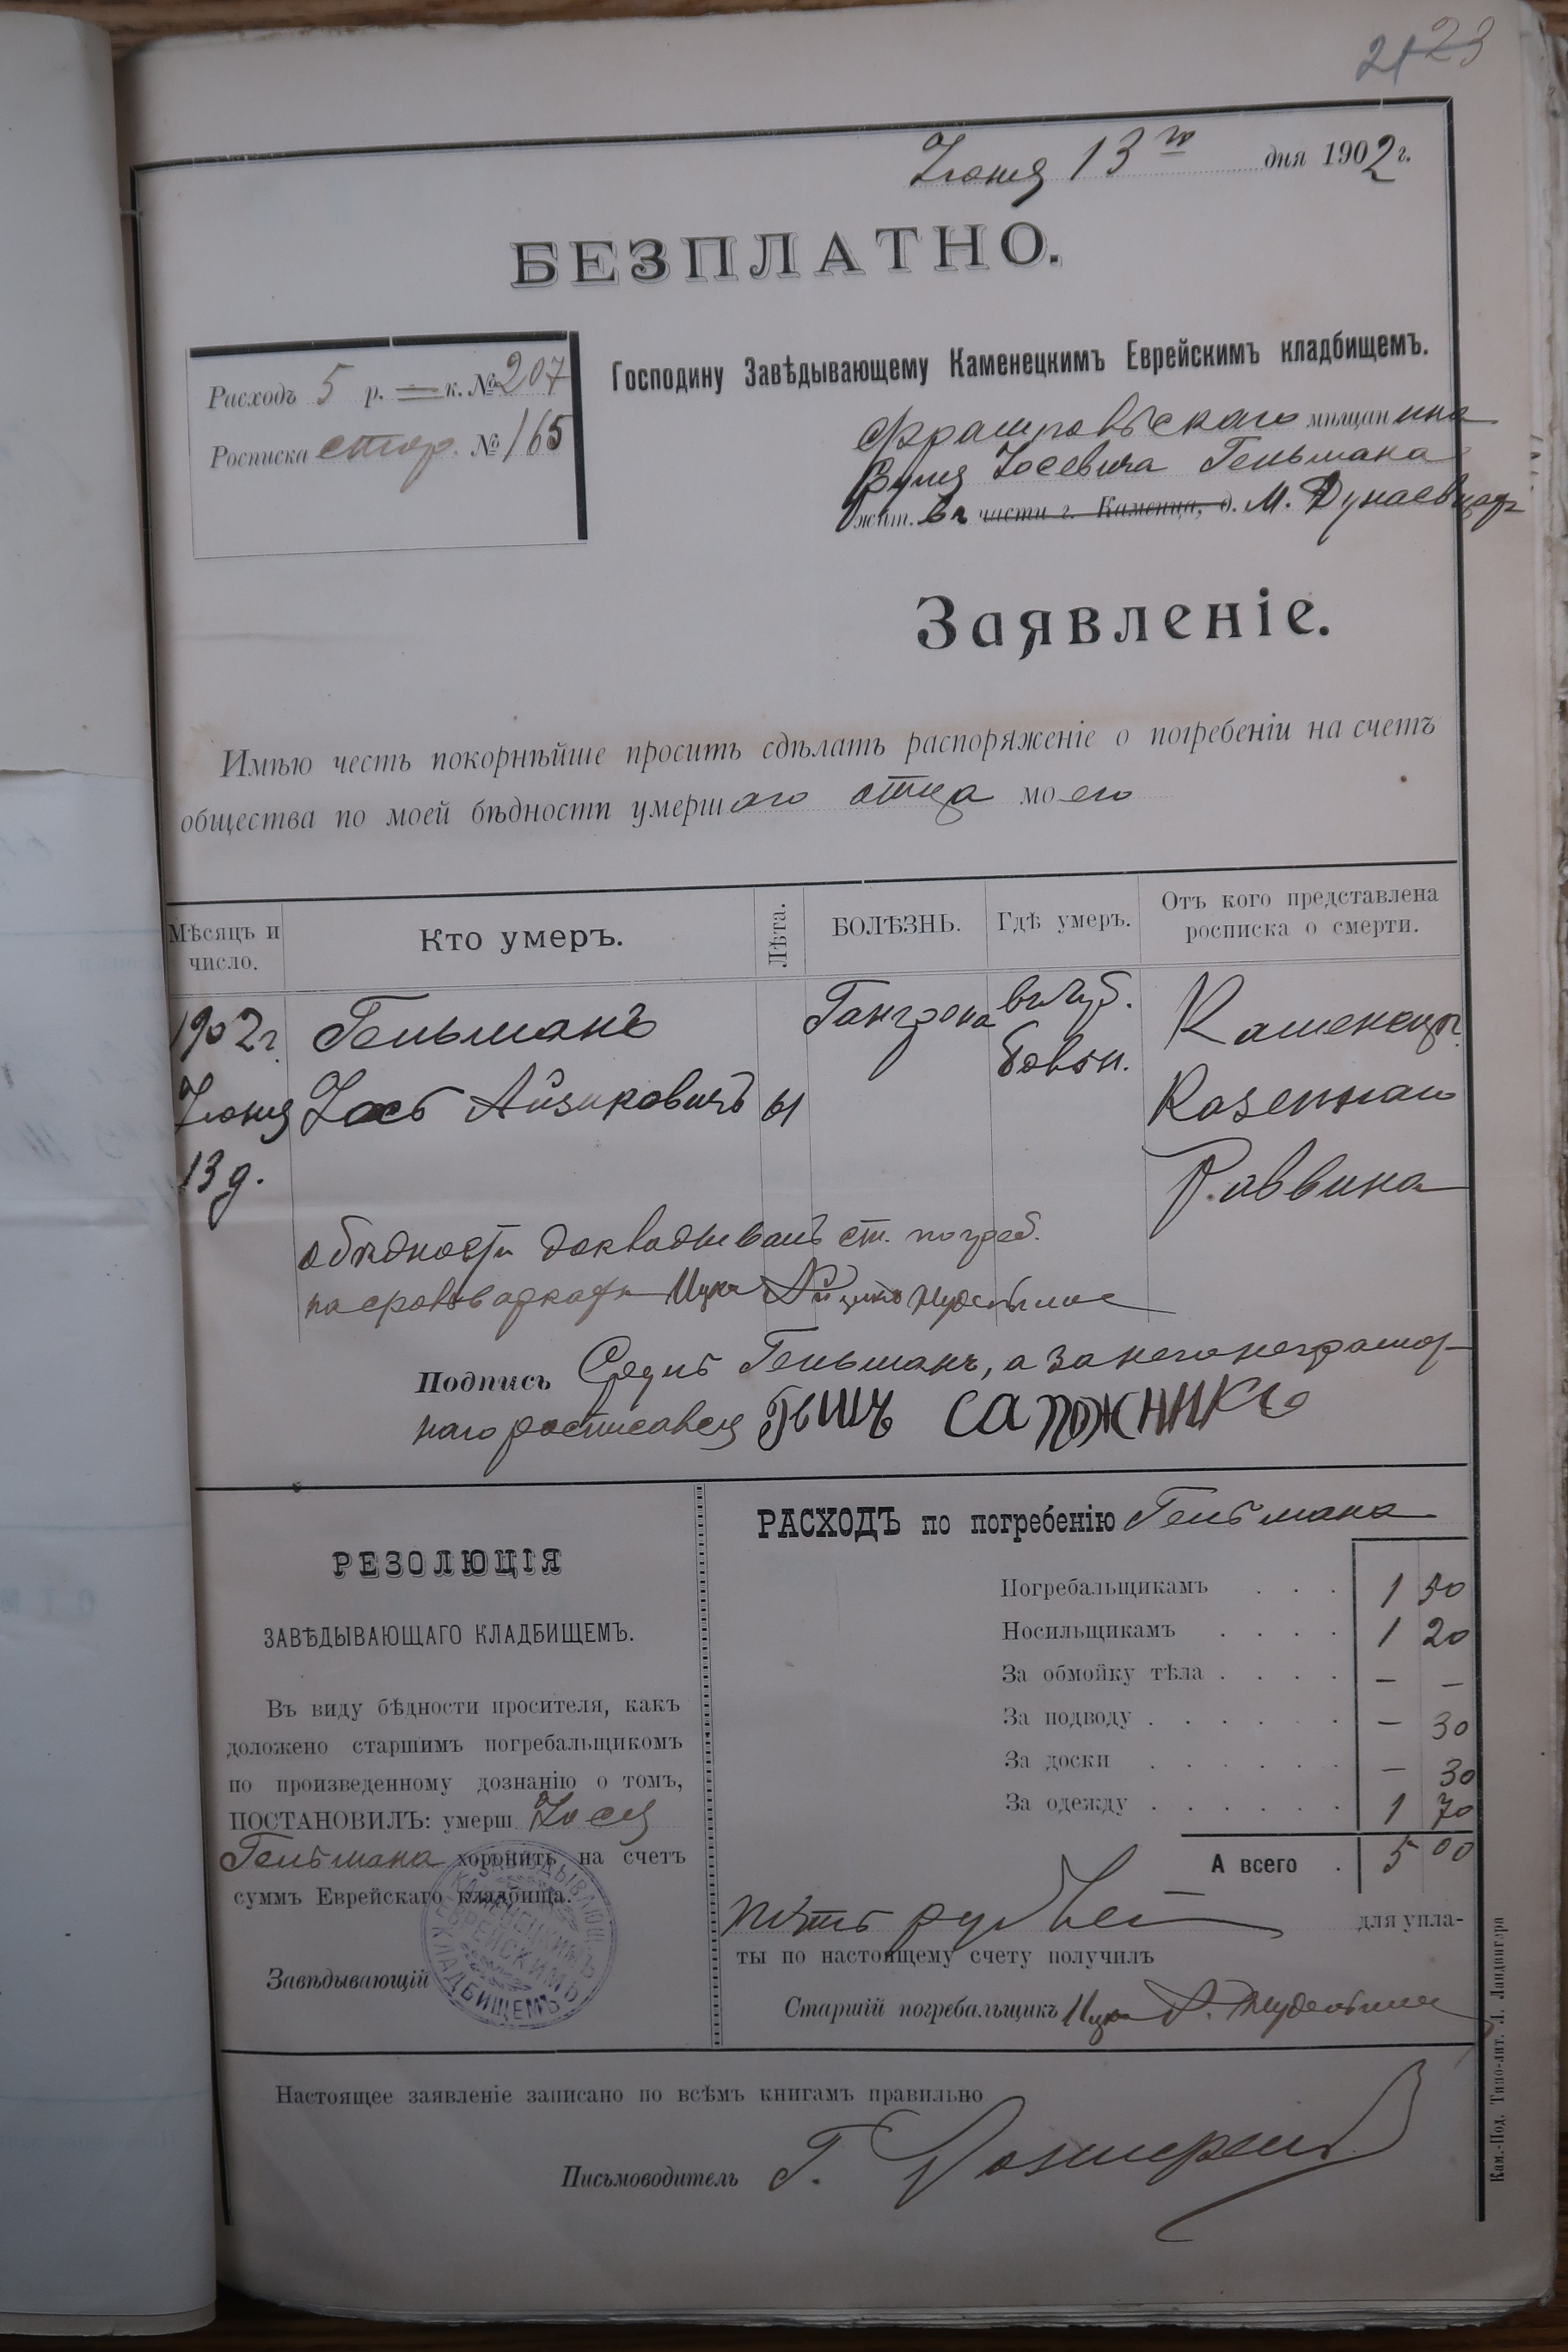 21 23
Іюня 13го дня 1902 г.
БЕЗПЛАТНО.
Расходъ 5 р. = к. № 207
Росписка стор. № 165
Господину Завѣдывающему Каменецкимъ Еврейскимъ кладбищемъ.
мѣщанина
Іосевича Гельмана
жит. въ части г. Каменца, д. М. Дунаевцахъ
Заявленіе.
Имѣю честь покорнѣйше просить сдѣлать распоряженіе о погребеніи на счетъ
общества по моей бѣдности умершаго отца моего
Мѣсяцъ и число.
Кто умеръ.
Лѣта.
БОЛѢЗНЬ.
Гдѣ умеръ.
Отъ кого представлена росписка о смерти.
1902 г. Гельманъ Гангрена въ губ. Каменецк.
Іюня Іось Айзиковичъ 61 Казеннаго
13 д. Раввина
о бѣдности ст. погреб.
Ицко
Подпись Гельманъ, а за него неграмот-
наго росписався Гершъ сапожникъ
РЕЗОЛЮЦІЯ
ЗАВѢДЫВАЮЩАГО КЛАДБИЩЕМЪ.
Въ виду бѣдности просителя, какъ
доложено старшимъ погребальщикомъ
по произведенному дознанію о томъ,
ПОСТАНОВИЛЪ: умерш Іося
Гельмана хоронить на счетъ
суммъ Еврейскаго кладбища.
Завѣдывающій
ЗАВѢДЫВАЮЩ. КАМЕНЕЦКИМЪ ЕВРЕЙСКИМЪ КЛАДБИЩЕМЪ
РАСХОДЪ по погребенію Гельмана
Погребальщикамъ . . . 1 50
Носильщикамъ . . . . 1 20
За обмойку тѣла . . . . – –
За подводу . . . . . . – 30
За доски . . . . . . – 30
За одежду . . . . . . 1 70
А всего . 5 00
пять рублей для упла-
ты по настоящему счету получилъ
Старшій погребальщикъ Ицко
Настоящее заявленіе записано по всѣмъ книгамъ правильно
Письмоводитель Г.
Кам.-Под. Типо-лит. Л. Ландвигера